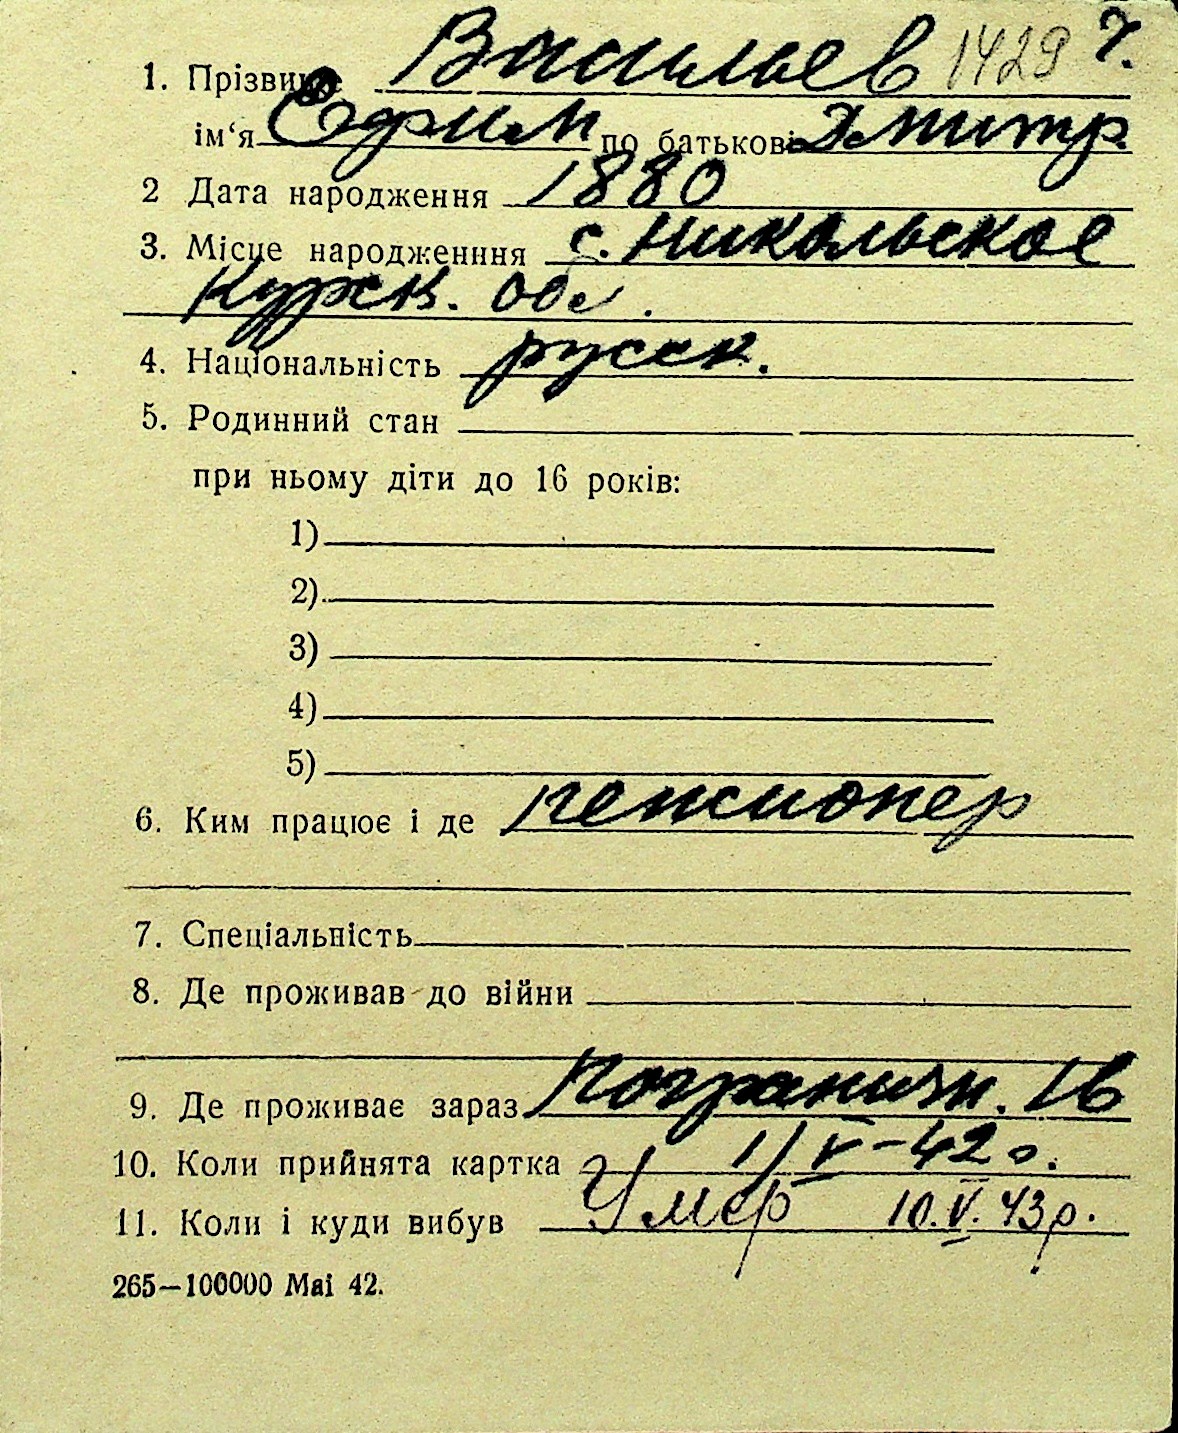 1. Прізвище Васильев 1429 ч.
ім‘я Ефим по батькові Дмитр.
2 Дата народження 1880
3. Місце народженння с. Никольское
Курск. обл.
4. Національність русск.
5. Родинний стан
при ньому діти до 16 років:
1)
2)
3)
4)
5)
6. Ким працює і де пенсионер
7. Спеціальність
8. Де проживав до війни
9. Де проживає зараз Пограничн. 1в
10. Коли прийнята картка 1/V-42
11. Коли і куди вибув Умер 10.V.43р.
265—100000 Mai 42.